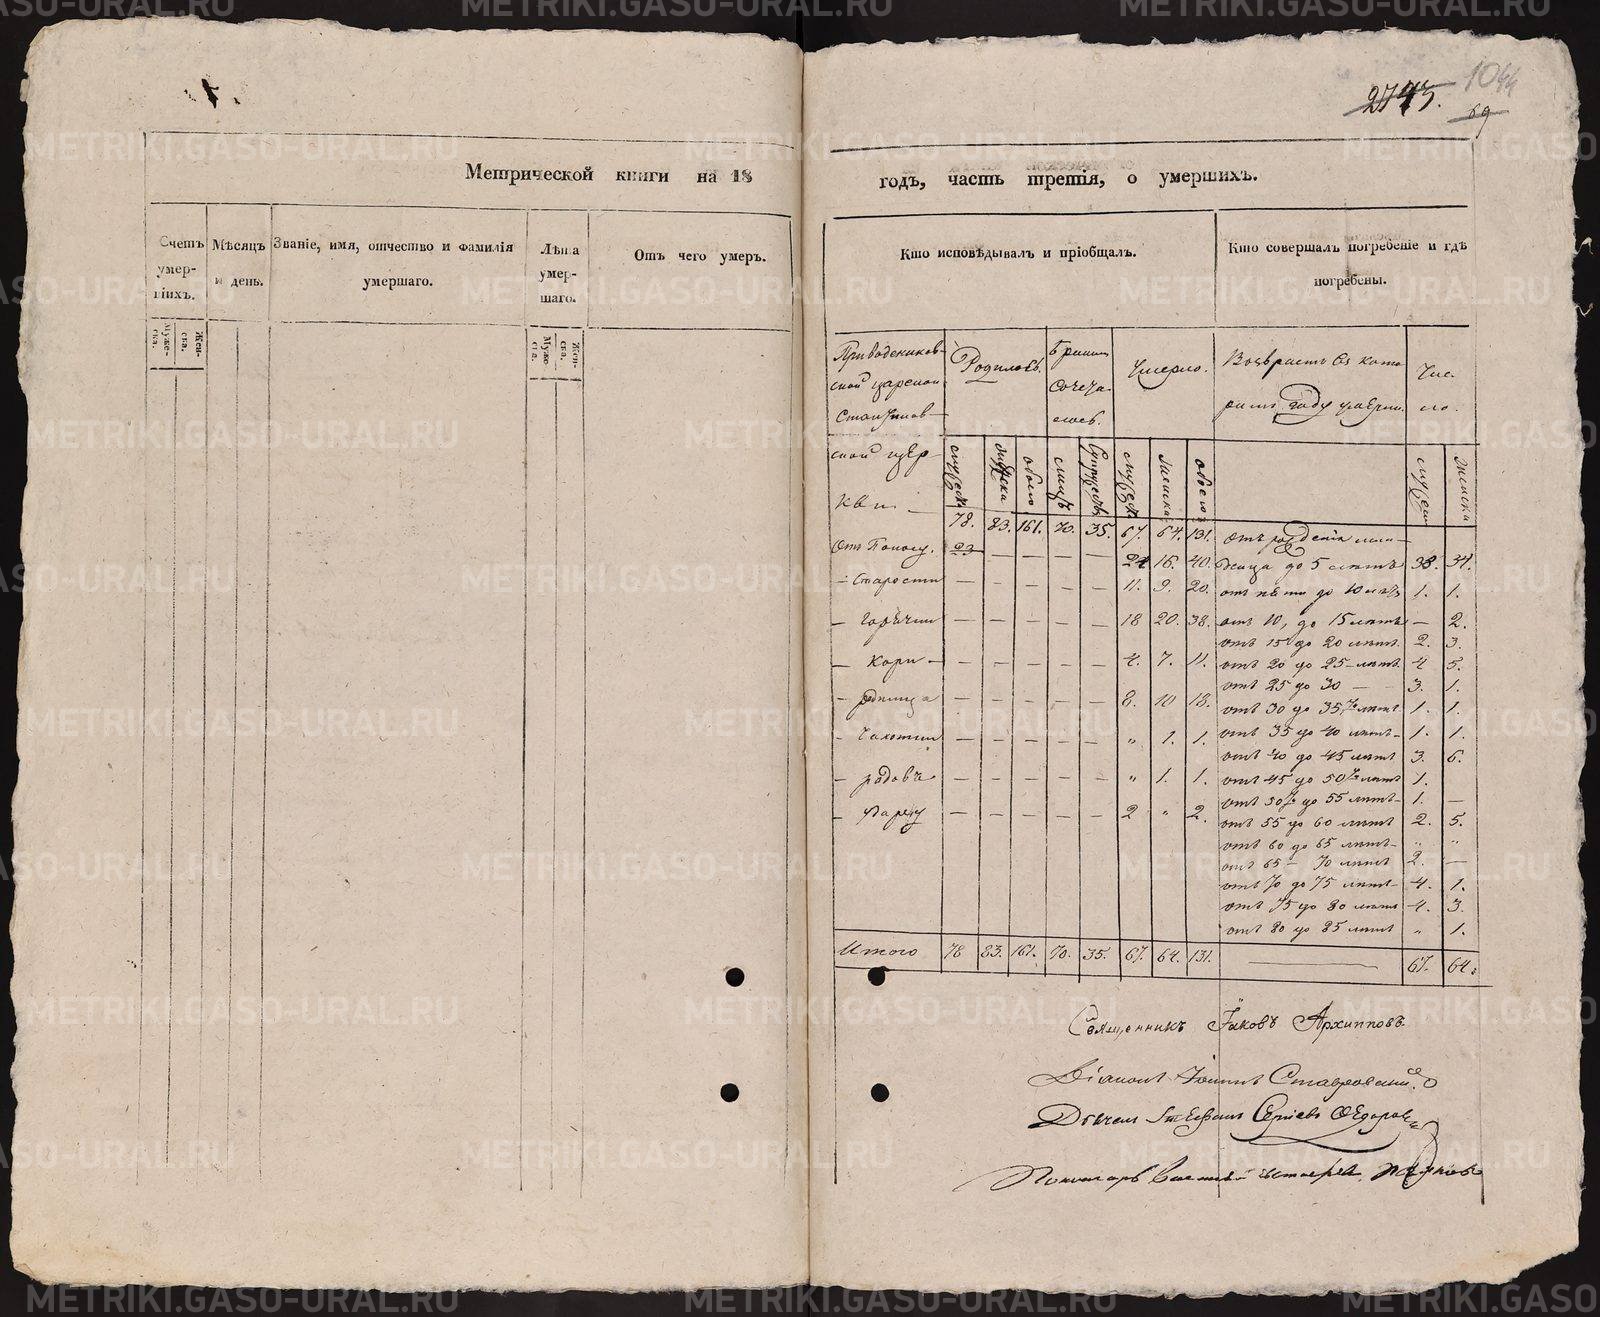 2743. 1044
69
Метрической книги на 18
годъ, часть третія, о умершихъ.
Счетъ умер-шихъ.
Мѣсяцъ и день.
Званіе, имя, отчество и фамилія умершаго.
Лѣта умер-шаго.
Отъ чего умеръ.
Муже-ска.
Жен-ска.
Муже-ска.
Жен-ска.
Кто исповѣдывалъ и пріобщалъ.
Кто совершалъ погребеніе и гдѣ погребены.
Родилось.
Бракомъ сочета-лось.
Умерло.
Возрастъ въ кото-ромъ году умерли.
Чис-ло.
ской цер-кви.
мужеска женска обоего лицъ супружествъ мужеска женска обоего мужеска женска
78. 83. 161. 70. 35. 67. 64. 131. Отъ рожденія мла-
Отъ Поносу. 23 – – – – – 24 16. 40. денца до 5 лѣтъ 38. 34.
– Старости – – – 11. 9. 20. отъ пяти до 10 лѣтъ 1. 1.
– Горячки – – – – – – 18 20. 38. отъ 10, до 15 лѣтъ – 2.
отъ 15 до 20 лѣтъ. 2. 3.
– Кори – – – – – – 4. 7. 11. отъ 20 до 25 лѣтъ 4 5.
отъ 25 до 30 – – 3. 1.
– – – – – – 8. 10 18. отъ 30 до 35 лѣтъ 1. 1.
– Чахотки – – – – – – „ 1. 1. отъ 35 до 40 лѣтъ 1. 1.
отъ 40 до 45 лѣтъ 3. 6.
– родовъ – – – – – – „ 1. 1. отъ 45 до 50 лѣтъ 1.
отъ 50 до 55 лѣтъ 1. –
– – – – – – – 2 „ 2. отъ 55 до 60 лѣтъ 2. 5.
отъ 60 до 65 лѣтъ „ „
отъ 65 – 70 лѣтъ 2. –
отъ 70 до 75 лѣтъ 4. 1.
отъ 75 до 80 лѣтъ 4. 3.
отъ 80 до 85 лѣтъ „ 1.
Итого 78 83. 161. 70. 35. 67. 64. 131. 67. 64.
Священникъ Іаковъ Архипповъ.
Діаконъ Іоаннъ Ставровскій.
Дьячекъ Стефанъ Сергіевъ Ѳедоровъ
Пономарь
METRIKI.GASO-URAL.RU